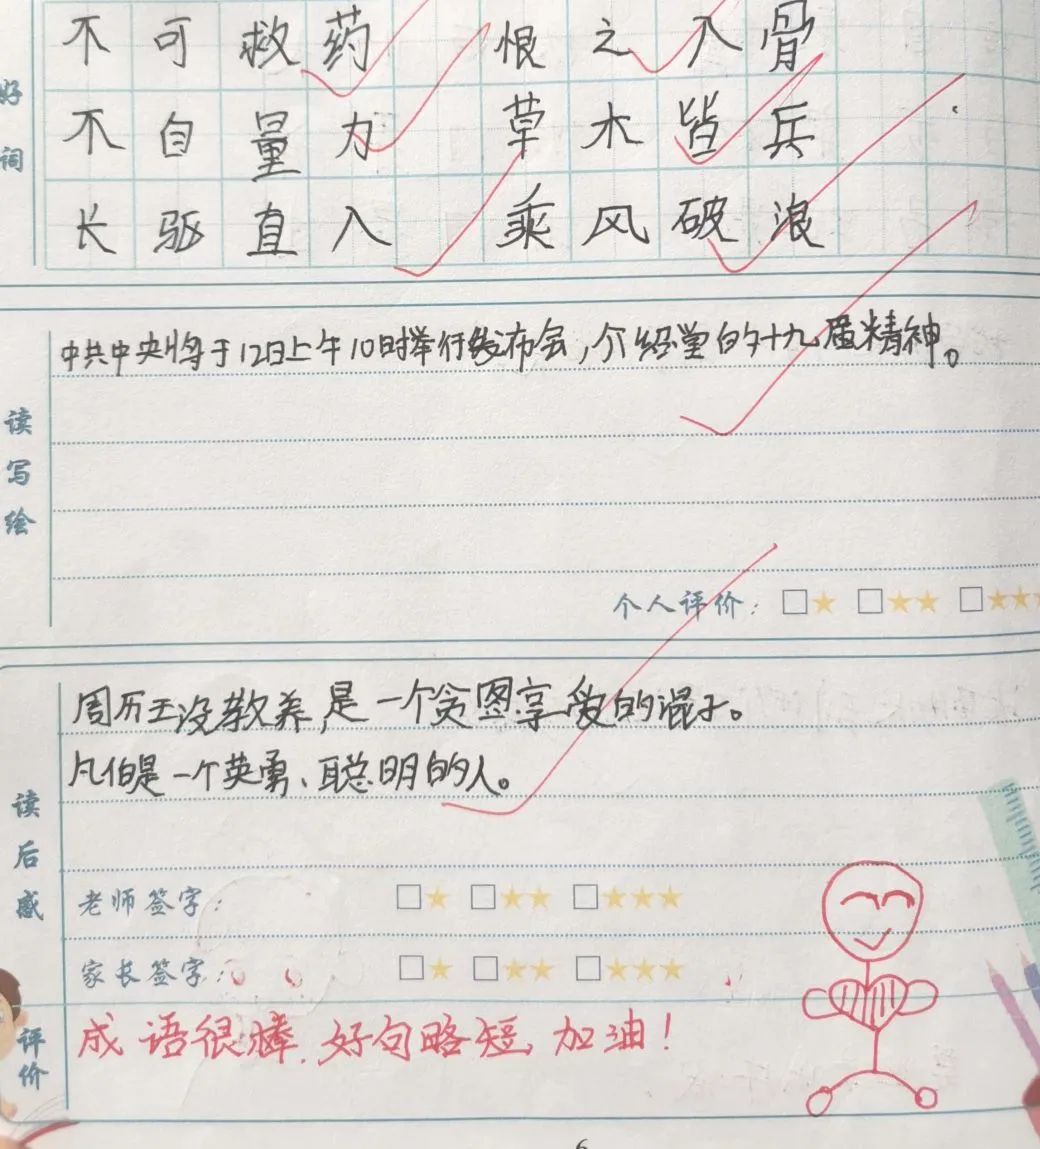 好词
不可救药 恨之入骨
不自量力 草木皆兵
长驱直入 乘风破浪
读写绘
中共中央将于12日上午10时举行发布会,介绍党的十九届精神。
个人评价:□★ □★★ □★★★
读后感
周历王没教养,是一个贪图享受的混子。
凡伯是一个英勇、聪明的人。
老师签字: □★ □★★ □★★★
家长签字: □★ □★★ □★★★
评价
成语很棒.好句略短,加油!
6